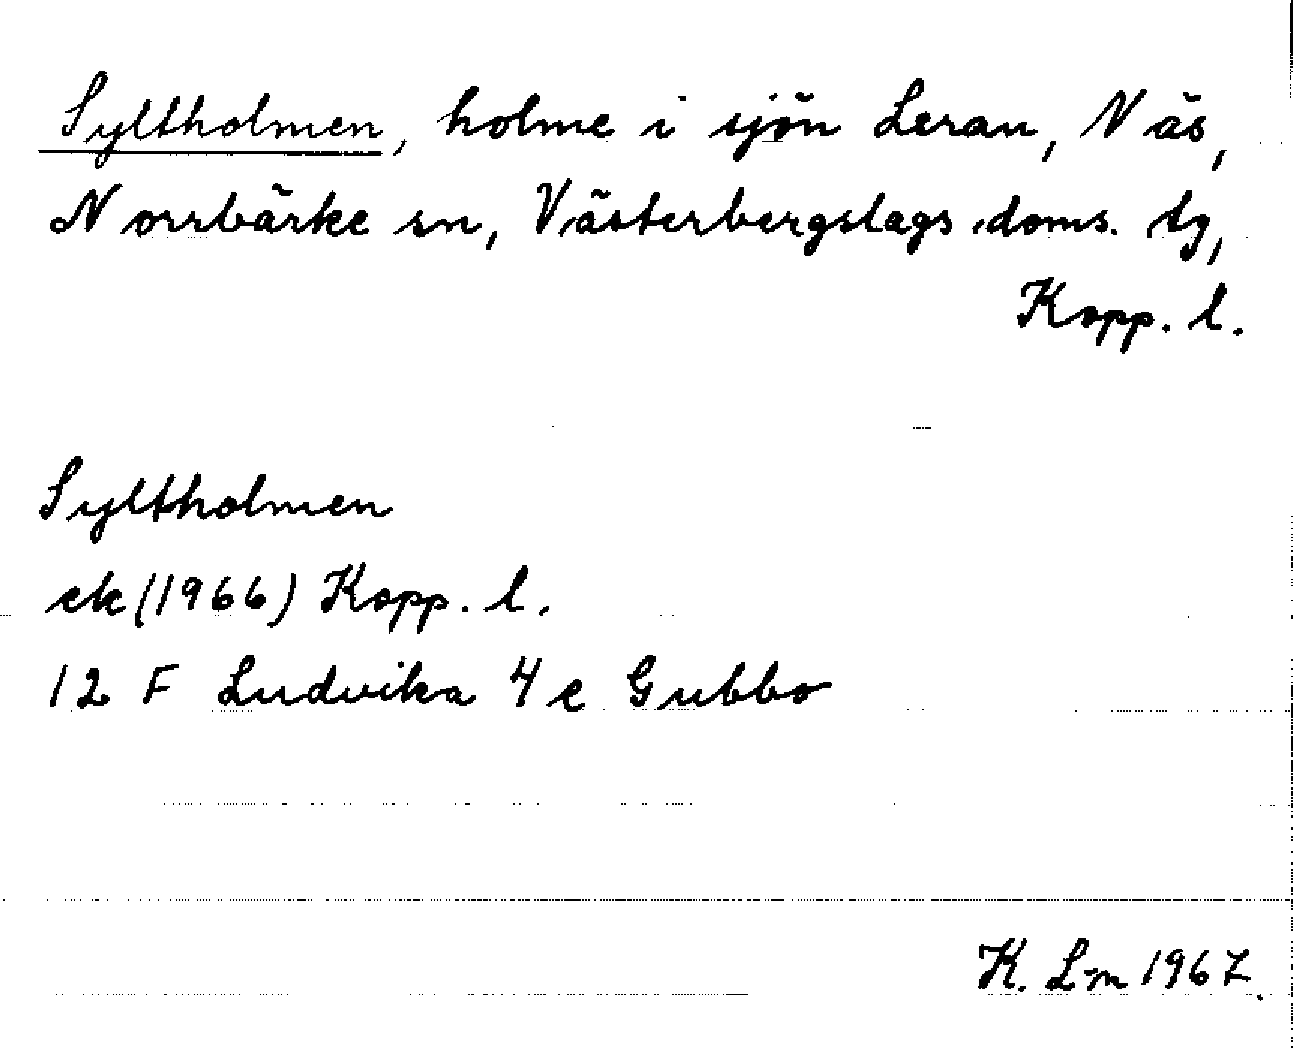 Syltholmen, holme i sjön Leran, Näs,
Norrbärke sn, Västerbergslags doms. tg,
Kopp. l.
Syltholmen
ek (1966) Kopp. l.
12 F Ludvika 4 e Gubbo
K. L-m 1967.